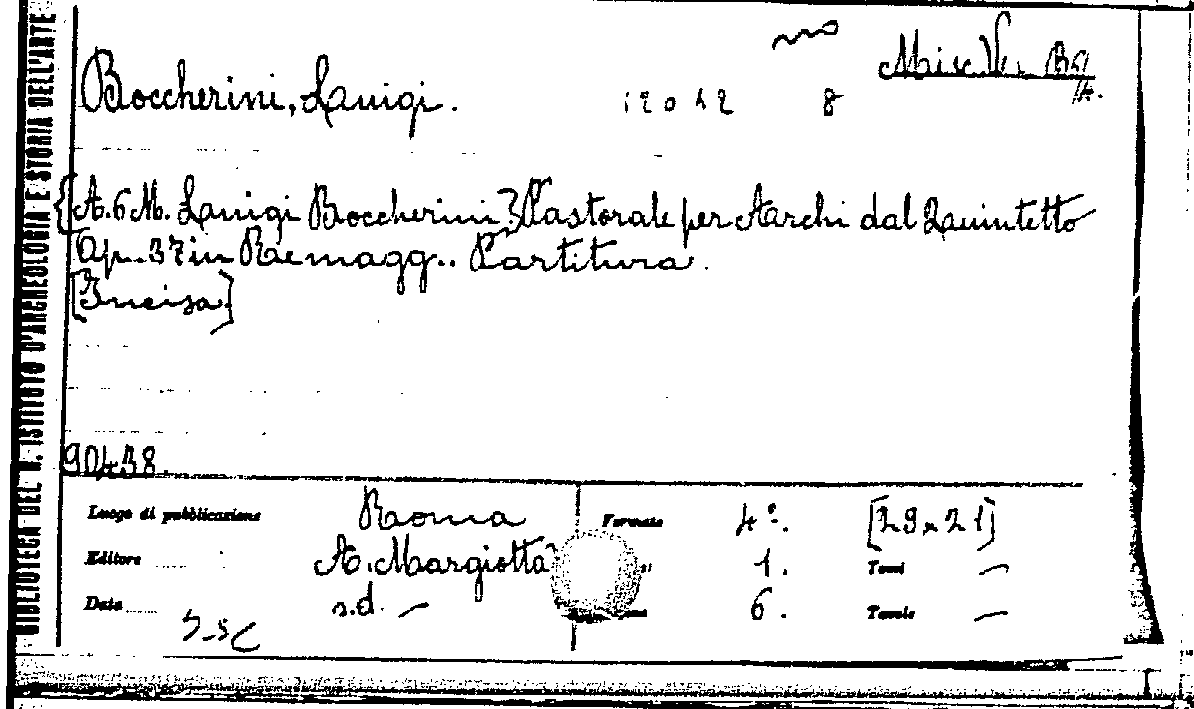 BIBLIOTECA DEL R. ISTITUTO D'ARCHEOLOGIA E STORIA DELL'ARTE
Boccherini, Luigi.
12042 8
Misc. V.
{A. 6 M. Luigi Boccherini} Pastorale per Archi dal Quintetto
Op. 37 in Re magg.. Partitura.
[Incisa]
90438.
Luogo di pubblicazione Roma Formato 4º. [29x21]
Editore A. Margiotta 1. Tomi –
Data s.d. – 6. Tavole –